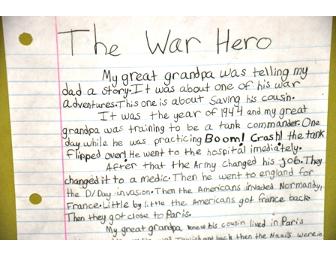 The War Hero
My great grandpa was telling my
dad a story. It was about one of his war
adventures. This one is about saving his cousin.
It was the year of 1944 and my great
grandpa was training to be a tank commander. One
day while he was practicing Boom! Crash! the tank
flipped over! He went to the hospital imidiately.
After that the Army changed his job. They
changed it to a medic. Then he went to england for
the D/Day invasion. Then the Americans invaded Normandy,
France. Little by little the Americans got france back.
Then they got close to Paris.
My great grandpa knew his cousin lived in Paris
back then the Nazis were in